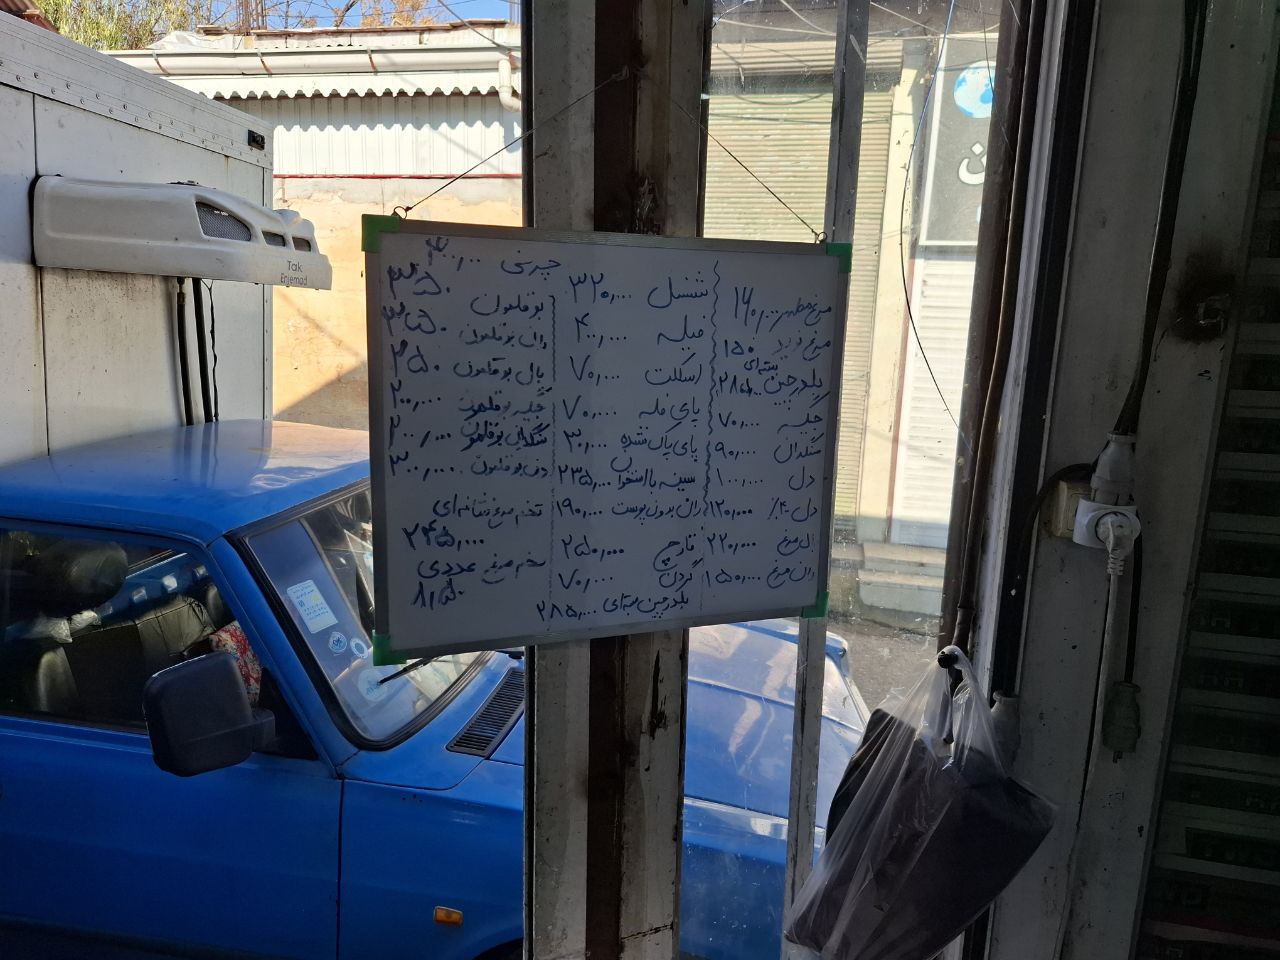 مرغ مطهر ۱۶۰,۰۰۰
مرغ ورید ۱۵۰
بلدرچین بسته‌ای ۲۸۵,۰۰۰
جگر ۷۰,۰۰۰
سنگدان ۹۰,۰۰۰
دل ۱۰۰,۰۰۰
دل ۴۰٪ ۱۲۰,۰۰۰
بال مرغ ۲۲۰,۰۰۰
ران مرغ ۱۵۰,۰۰۰
شنسل ۳۲۰,۰۰۰
فیله ۴۰,۰۰۰
اسکلت ۷۰,۰۰۰
پای فله ۷۰,۰۰۰
پای پاک شده ۳۰,۰۰۰
سینه با استخوان ۲۳۵,۰۰۰
ران بدون پوست ۱۹۰,۰۰۰
قارچ ۲۵۰,۰۰۰
گردن ۷۰,۰۰۰
بلدرچین بسته‌ای ۲۸۵,۰۰۰
۳۰,۰۰۰
بوقلمون ۳۵۰
ران بوقلمون ۳۵۰
بال بوقلمون ۲۵۰
جگر بوقلمون ۲۰۰,۰۰۰
سنگدان بوقلمون ۲۰۰,۰۰۰
بوقلمون ۳۰۰,۰۰۰
تخم مرغ شانه‌ای
۲۴۵,۰۰۰
تخم مرغ عددی
۸,۵۰۰
Tak
Enjemad
ن